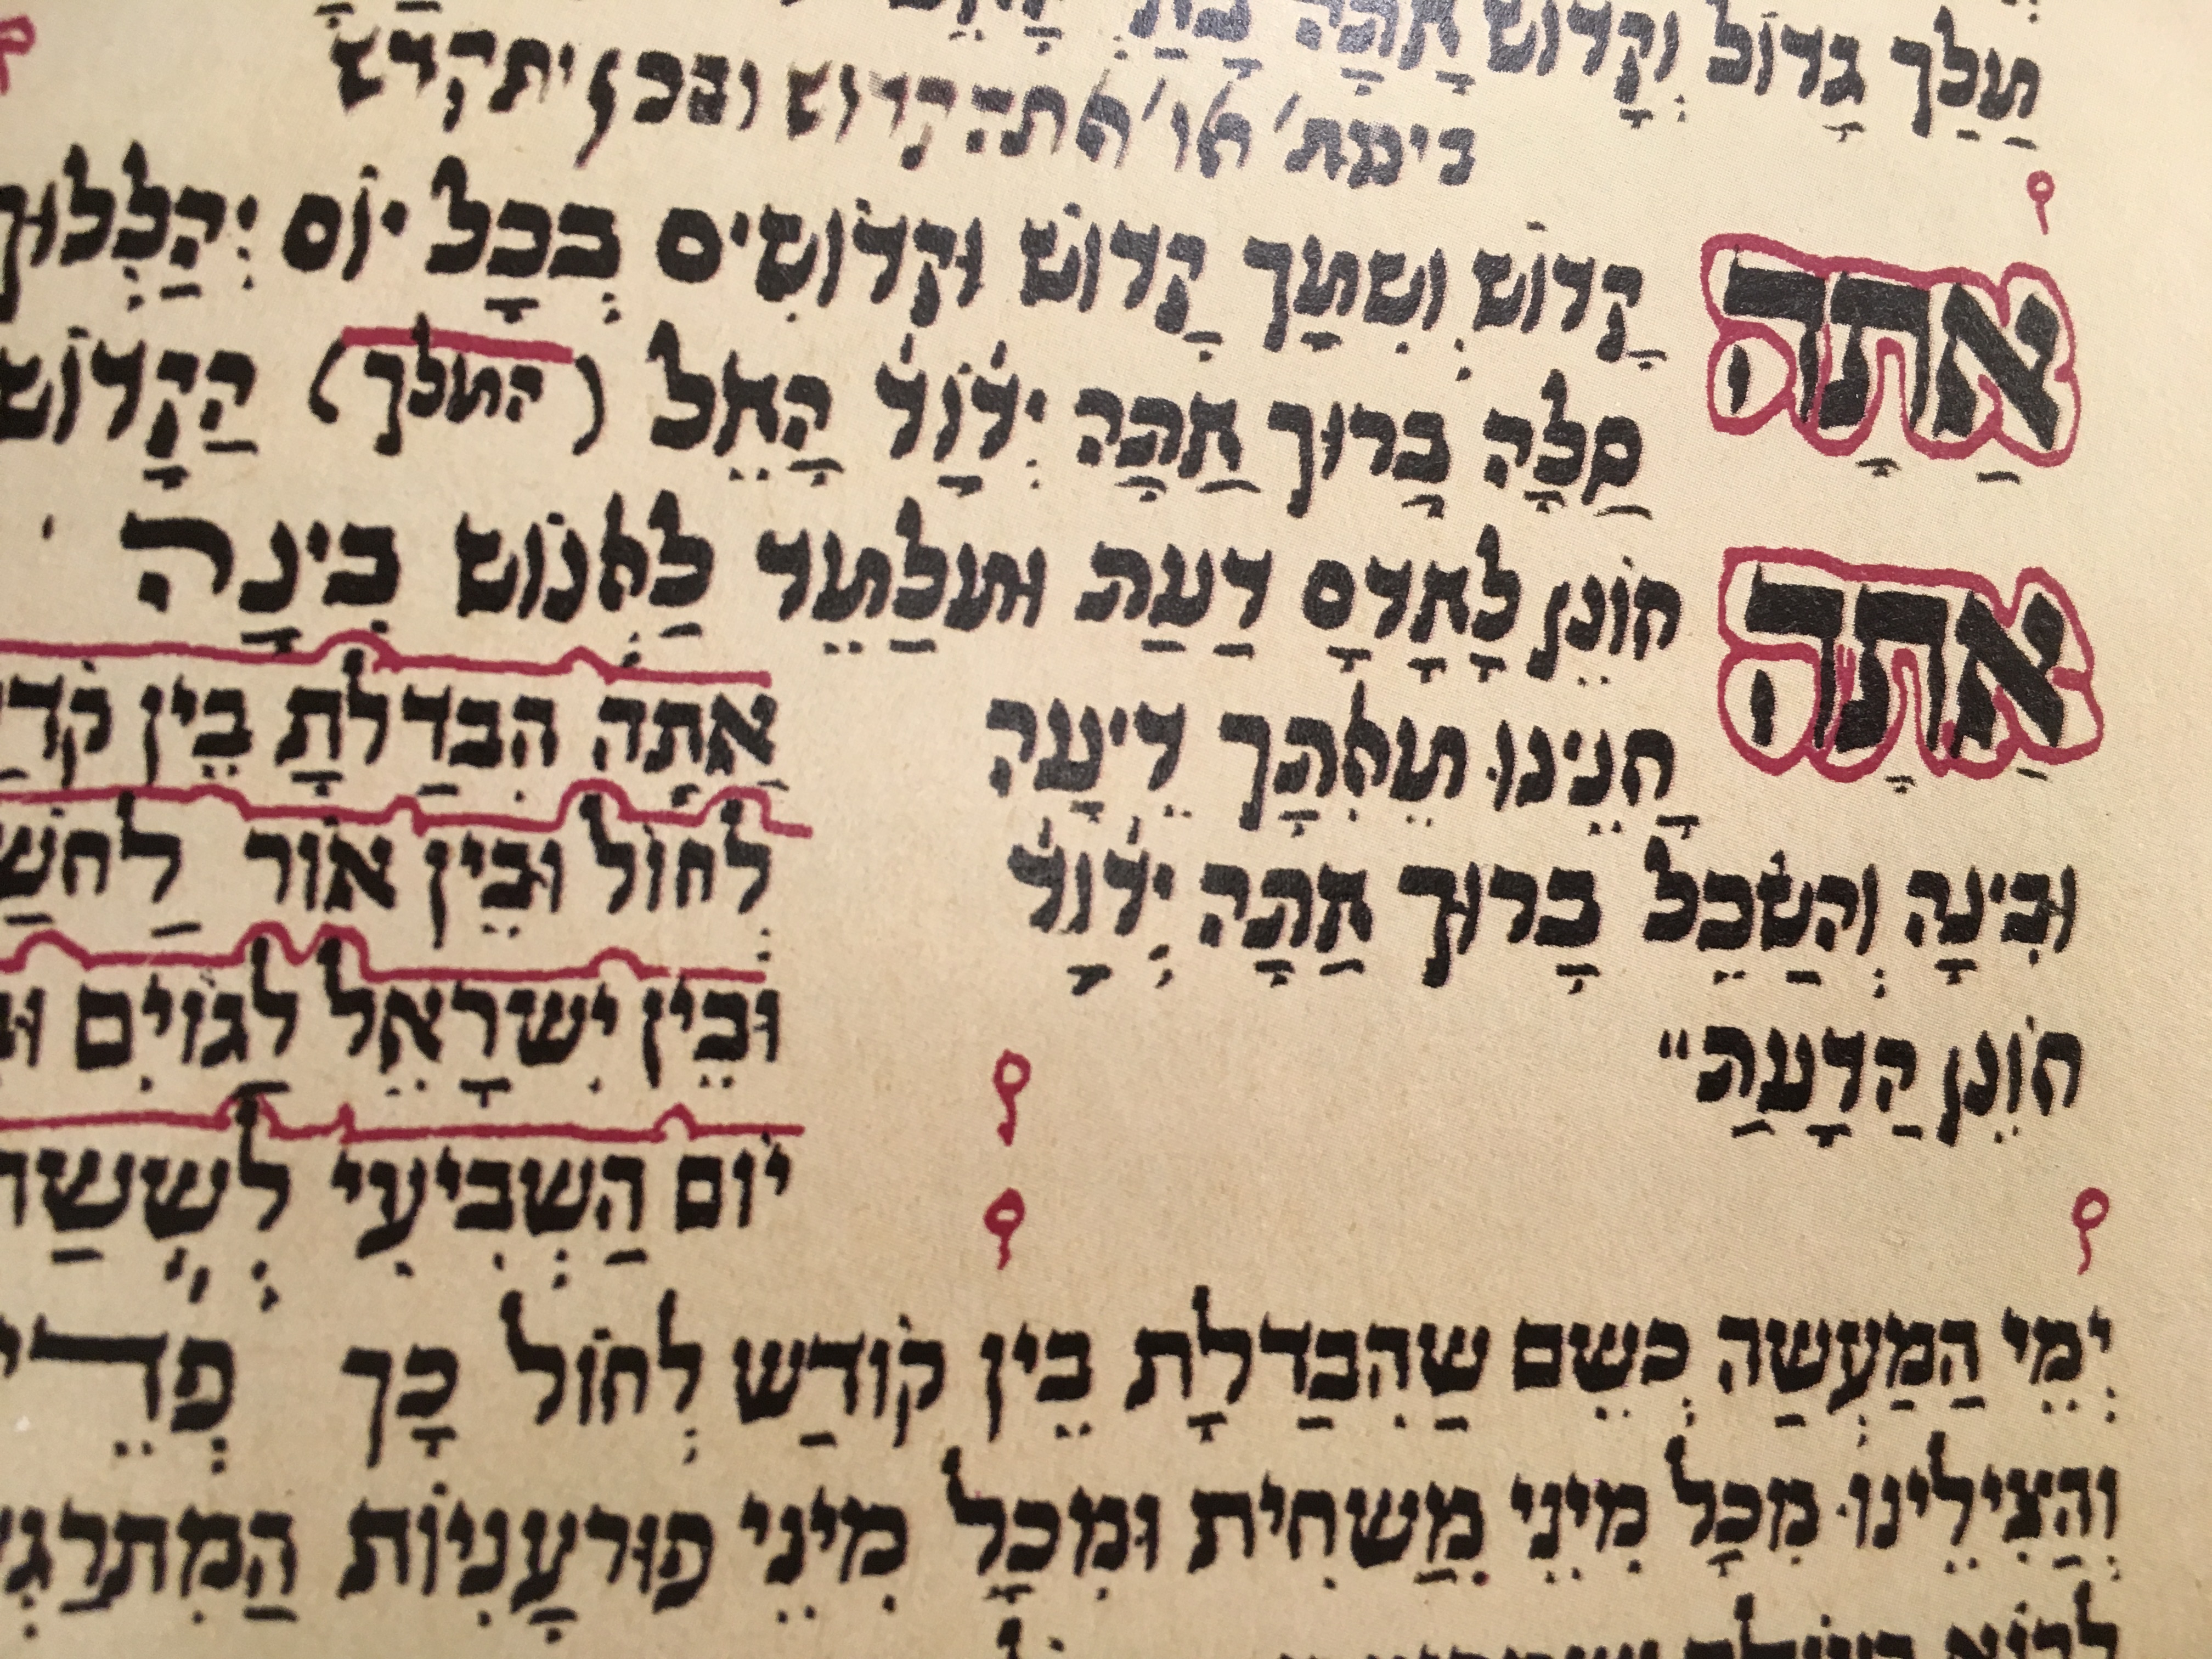 תמלך גדול וקדוש אתה
בימות׳ או׳ אתה קדוש ובכן יתקדש
אַתָּה קָדוֹשׁ וְשִׁמְךָ קָדוֹשׁ וּקְדוֹשִׁים בְּכָל יוֹם יְהַלְלוּךָ
סֶלָה בָּרוּךְ אַתָּה יְיָ הָאֵל (המלך) הַקָּדוֹשׁ
אַתָּה חוֹנֵן לְאָדָם דַּעַת וּמְלַמֵּד לֶאֱנוֹשׁ בִּינָה
חָנֵינוּ מֵאִתְּךָ דֵּיעָה
וּבִינָה וְהַשְׂכֵּל בָּרוּךְ אַתָּה יְיָ
חוֹנֵן הַדָּעַת״
אַתָּה הִבְדַּלְתָּ בֵּין קֹדֶ
לְחוֹל וּבֵין אוֹר לַחשֶׁ
וּבֵין יִשְׂרָאֵל לַגּוֹיִם וּ
יוֹם הַשְּׁבִיעִי לְשֵׁשֶׁ
יְמֵי הַמַּעֲשֶׂה כְּשֵׁם שֶׁהִבְדַּלְתָּ בֵּין קוֹדֶשׁ לְחוֹל כָּךְ פְּדֵי
וְהַצִּילֵינוּ מִכָּל מִינֵי מַשְׁחִית וּמִכָּל מִינֵי פּוּרְעָנִיּוֹת הַמִּתְרַגְּ
לבוא